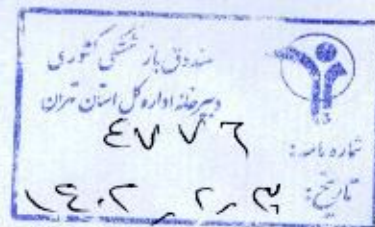 صندوق بازنشستگی کشوری
دبیرخانه اداره کل استان تهران
شماره نامه: ٤٧٧٦
تاریخ: ١٤٠٢٫٢٫٣